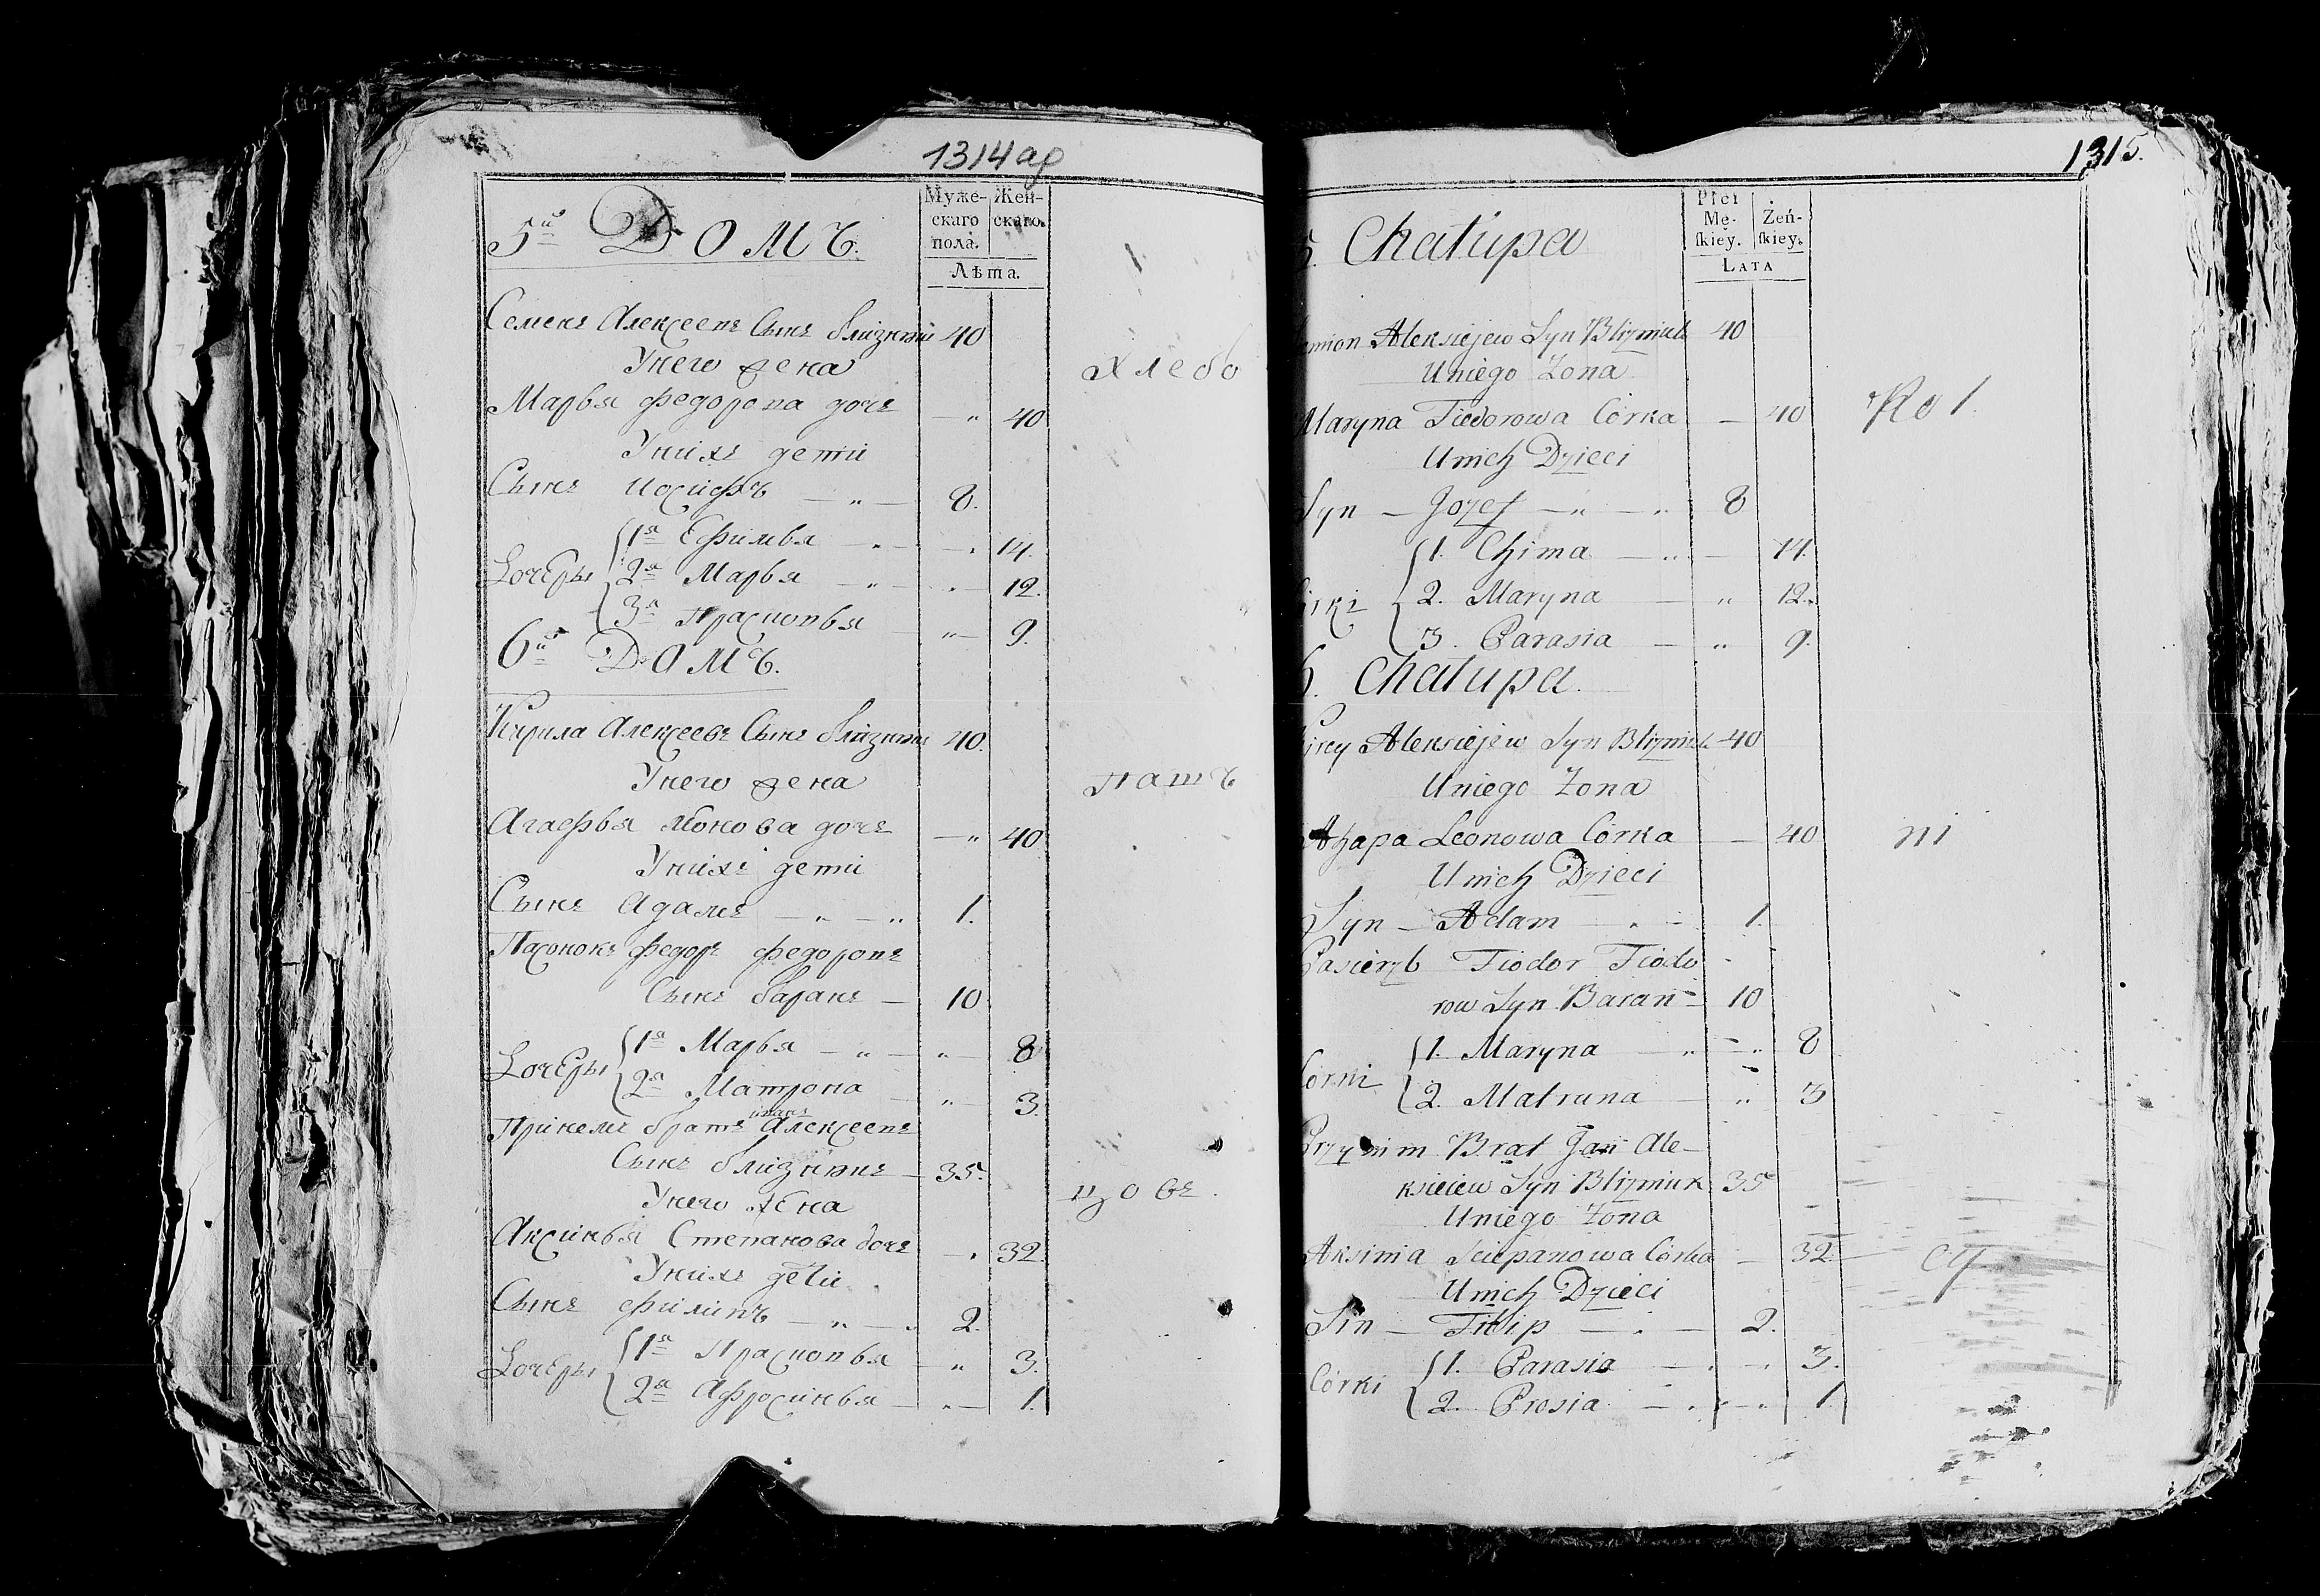 1314 аф
5й ДОМЪ.
Муже-
скаго
пола.
Жен-
скаго.
Лѣта.
Семенъ Алексеевъ Сынъ близнюк 40
Унего жена
Хлебо
Марья федорова дочь — „ 40
Унихъ дети
Сынъ Иосифъ — „ — 8.
Дочеры
1я Ефимья — „ — 14.
2я Марья — „ — 12.
3я Прасковья — „ — 9.
6й ДОМЪ.
Кирила Алексеевъ Сынъ близнюк 40.
Унего жена
пашъ
Агафья дочь — „ 40
Унихъ дети
Сынъ Адамъ — „ — „ 1.
Пасонокъ федоръ федоровъ
Сынъ баранъ — 10
Дочеры
1я Марья — „ — „ — 8
2я Матрона — „ — 3.
иванъ
братъ Алексеевъ
Сынъ близнюкъ — 35.
Унего жена
цовъ.
Аксинья Степанова дочь — „ 32.
Унихъ дети
Сынъ филипъ — „ — 2.
Дочеры
1я Прасковья — „ 3.
2я Афросинья — „ — 1.
1315.
5. Chałupa
Płci
Mę-
skiey.
Żeń-
skiey.
LATA
emion Aleksiejew Syn Blizniuk 40
Uniego Żona
Rol.
Maryna Fiedorowa Córka — 40
Unich Dzieci
Syn — Jozef — „ — „ 8
órki
1. Chima — „ — 14.
2. Maryna — „ 12.
3. Parasia — „ 9.
6. Chałupa.
irey Aleksiejew Syn Blizniuk 40
Uniego Żona
Ahapa Leonowa Córka — 40
ni
Unich Dzieci
Syn — Adam — „ — 1.
Pasierzb Fiodor Fiodo-
row Syn Baran — 10
Córki
1. Maryna — „ — „ 8
2. Matruna — „ 3
Przy nim Brat Jan Ale-
ksieiew Syn Blizniuk 35
Uniego Żona
Aksinia Sciepanowa Córka — 32.
cy
Unich Dzieci
Sin — Filip — „ — 2.
Córki
1. Parasia — „ — „ 3.
2. Prosia — „ — „ 1